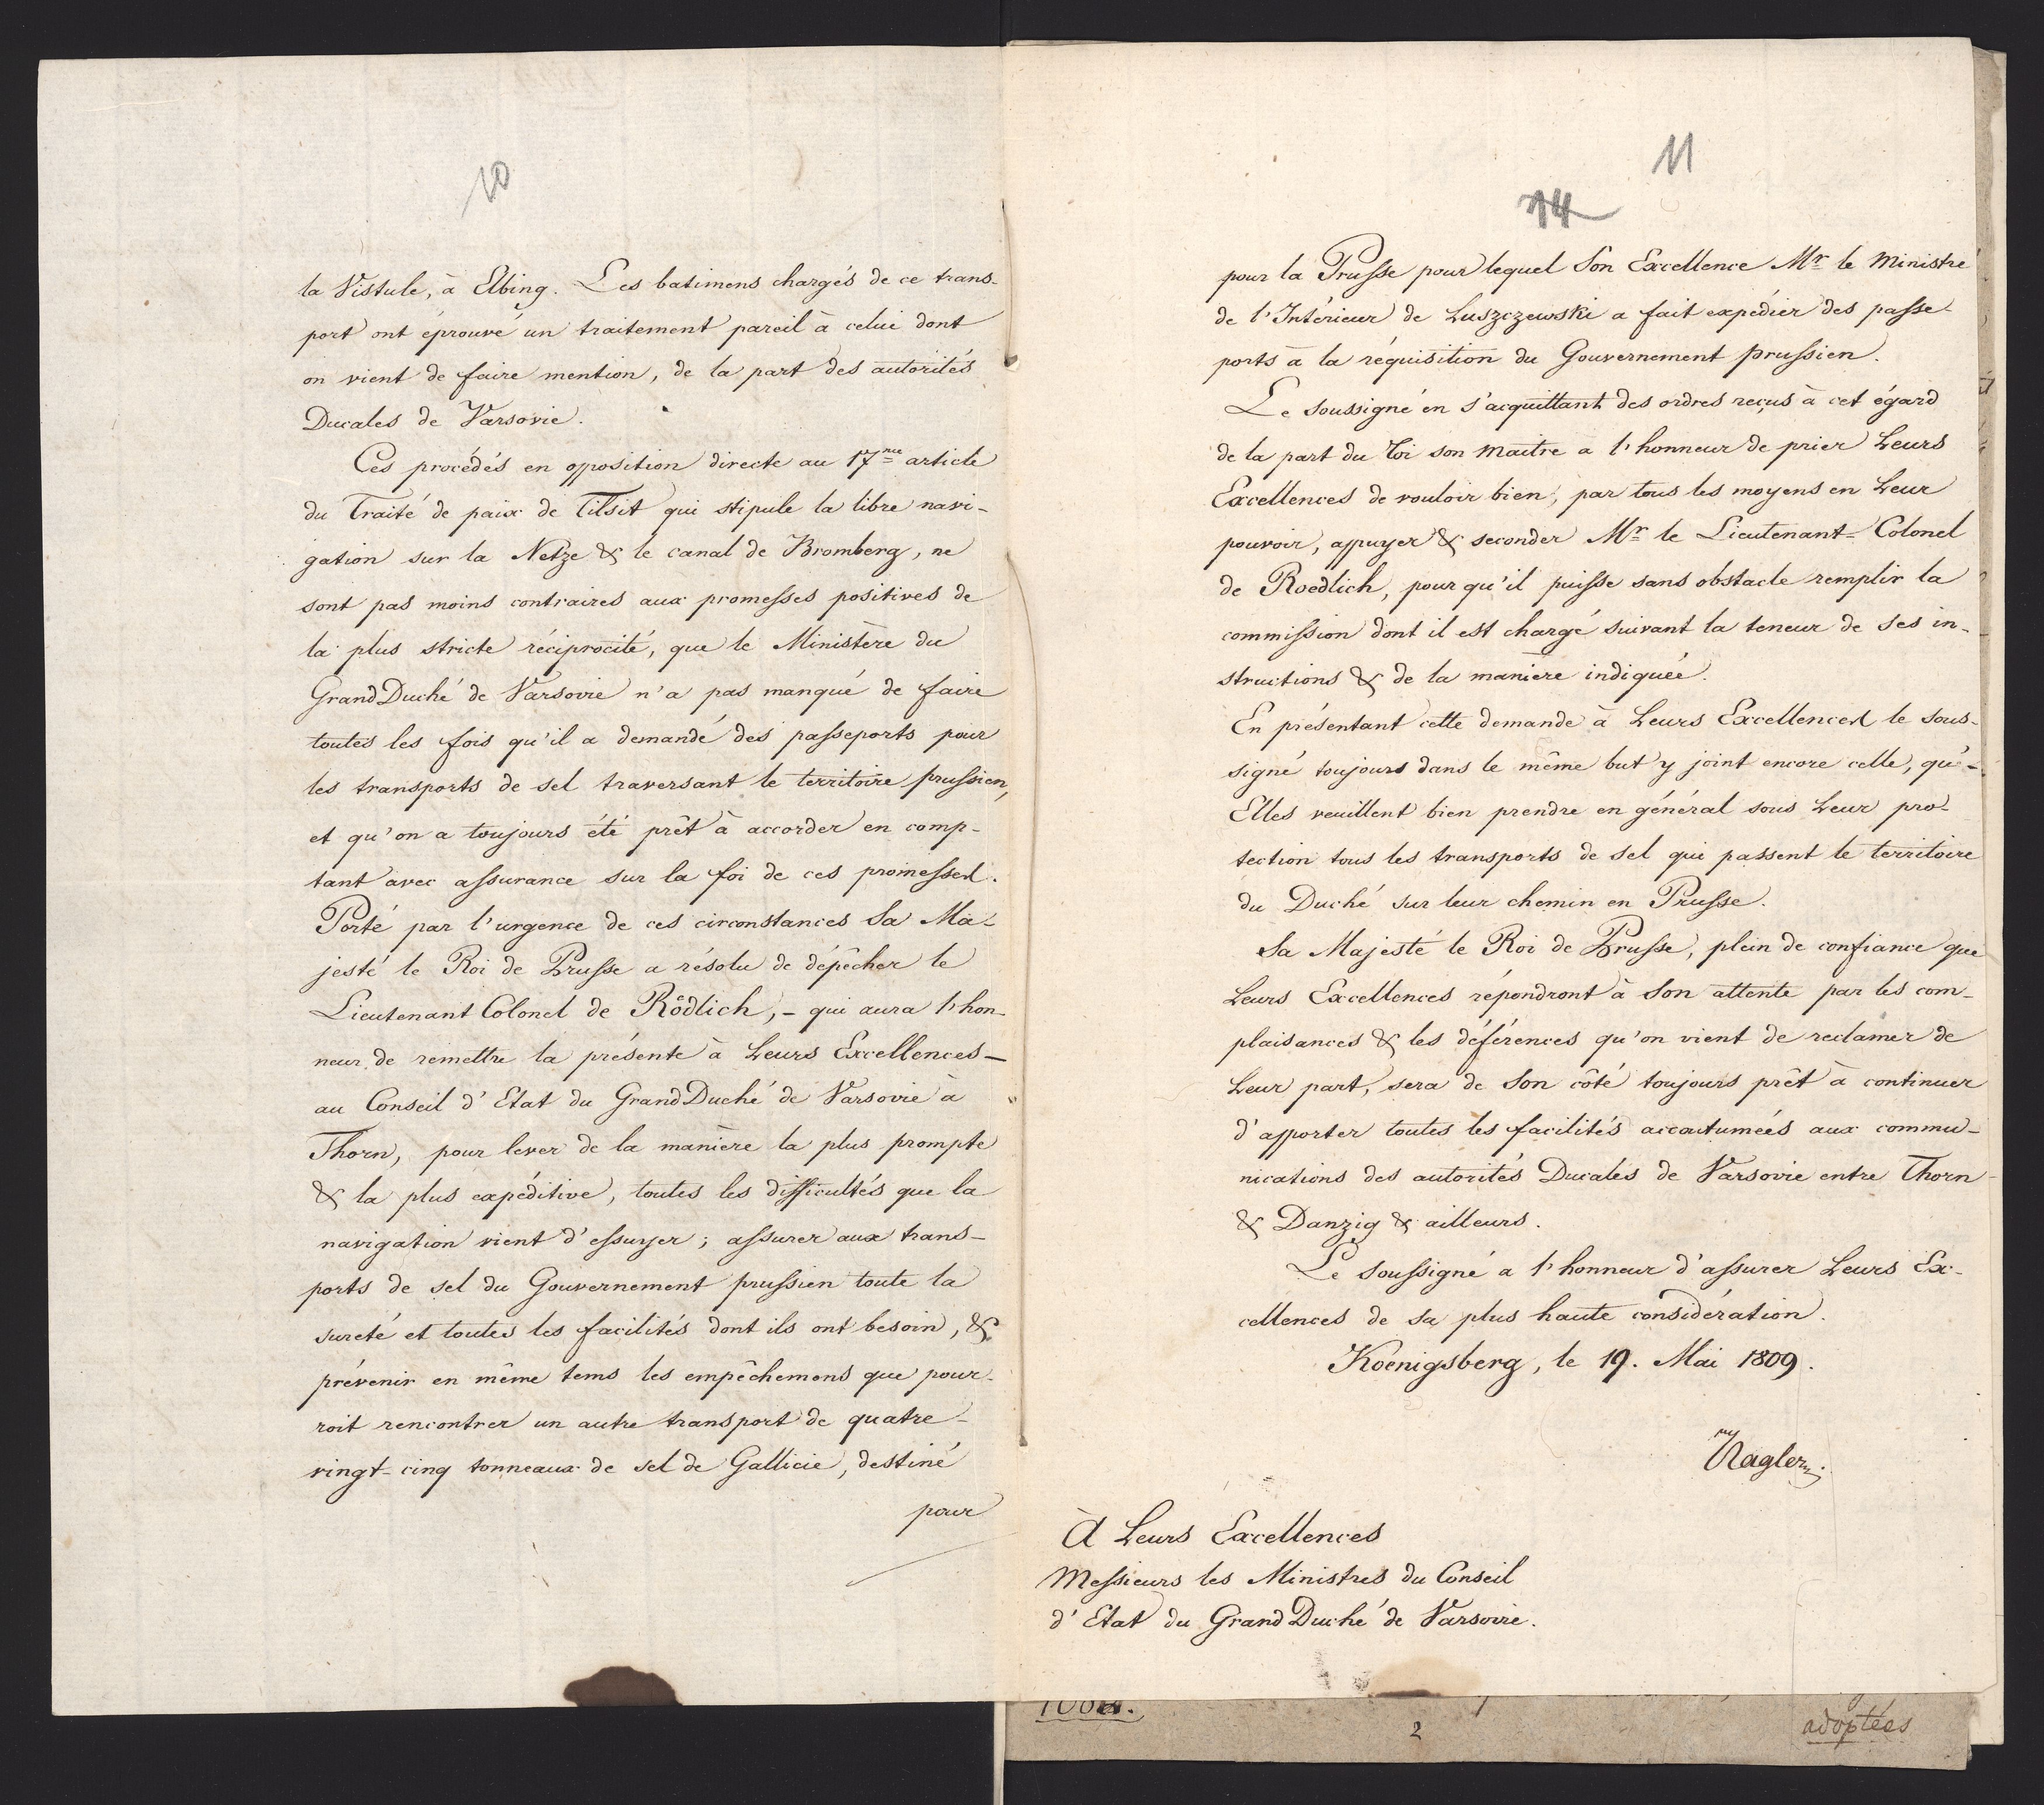 10
la Vistule, à Elbing. Les batimens chargés de ce trans-
port ont éprouvé un traitement pareil à celui dont
on vient de faire mention, de la part des autorités
Ducales de Varsovie.
Ces procédés en opposition directe au 17me article
du Traité de paix de Tilsit qui stipule la libre navi-
gation sur la Netze & le canal de Bromberg, ne
sont pas moins contraires aux promesses positives de
la plus stricte réciprocité, que le Ministère du
Grand Duché de Varsovie n'a pas manqué de faire
toutes les fois qu'il a demandé des passeports pour
les transports de sel traversant le territoire prussien,
et qu'on a toujours été prêt à accorder en comp-
tant avec assurance sur la foi de ces promesses.
Porté par l'urgence de ces circonstances Sa Ma-
jesté le Roi de Prusse a résolu de dépêcher le
Lieutenant Colonel de Rödlich, - qui aura l'hon-
neur de remettre la présente à Leurs Excellences -
au Conseil d'Etat du Grand Duché de Varsovie à
Thorn, pour lever de la manière la plus prompte
& la plus expéditive, toutes les difficultés que la
navigation vient d'essuyer; assurer aux trans-
ports de sel du Gouvernement prussien toute la
sureté et toutes les facilités dont ils ont besoin, &
prévenir en même tems les empêchemens que pour-
roit rencontrer un autre transport de quatre-
vingt-cinq tonneaux de sel de Gallicie, destiné
pour
11
14
pour la Prusse pour lequel Son Excellence Mr le Ministre
de l'Intérieur de Luszczewski a fait expédier des passe-
ports à la réquisition du Gouvernement prussien.
Le soussigné en s'acquittant des ordres reçus à cet égard
de la part du Roi son maitre a l'honneur de prier Leurs
Excellences de vouloir bien, par tous les moyens en Leur
pouvoir, appuyer & seconder Mr le Lieutenant-Colonel
de Roedlich, pour qu'il puisse sans obstacle remplir la
commission dont il est chargé suivant la teneur de ses in-
structions & de la manière indiquée.
En présentant cette demande à Leurs Excellences le sous-
signé toujours dans le même but y joint encore celle, qu'-
Elles veuillent bien prendre en général sous Leur pro-
tection tous les transports de sel qui passent le territoire
du Duché sur leur chemin en Prusse.
Sa Majesté le Roi de Prusse, plein de confiance que
Leurs Excellences répondront à Son attente par les com-
plaisances & les déférences qu'on vient de reclamer de
Leur part, sera de Son côté toujours prêt à continuer
d'apporter toutes les facilités accoutumées aux commu-
nications des autorités Ducales de Varsovie entre Thorn
& Danzig & ailleurs.
Le soussigné a l'honneur d'assurer Leurs Ex-
cellences de sa plus haute considération.
Koenigsberg, le 19. Mai 1809.
Nagler
À Leurs Excellences
Messieurs les Ministres du Conseil
d'Etat du Grand Duché de Varsovie.
2
adoptées